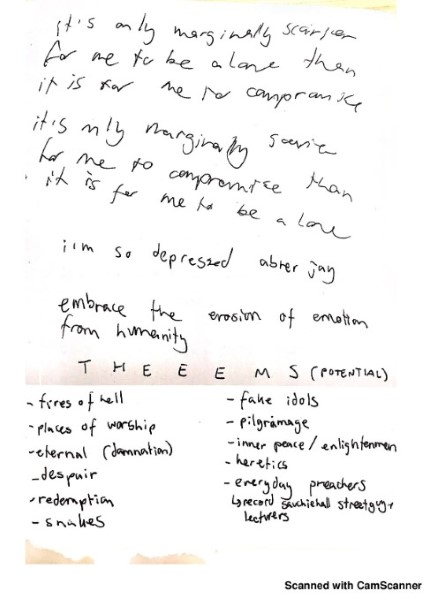 it's only marginally scarier
for me to be alone than
it is for me to compromise
it's only marginally scarier
for me to compromise than
it is for me to be a lone
i'm so depressed
embrace the erosion of emotion
from humanity
T H E E E M S (POTENTIAL)
- fires of hell
- places of worship
- eternal (damnation)
- despair
- redemption
- snakes
- fake idols
- pilgramage
- inner peace / enlightenmen
- heretics
- everyday preachers
↳ record street guy +
lecturers
Scanned with CamScanner